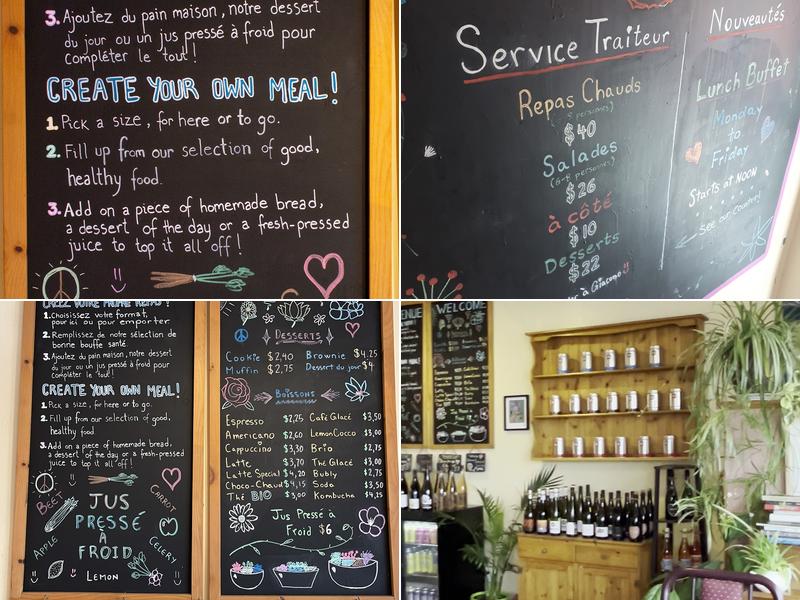 3. Ajoutez du pain maison, notre dessert
du jour ou un jus pressé à froid pour
compléter le tout!
CREATE YOUR OWN MEAL!
1. Pick a size, for here or to go.
2. Fill up from our selection of good,
healthy food.
3. Add on a piece of homemade bread,
a dessert of the day or a fresh-pressed
juice to top it all off!
Service Traiteur
Repas Chauds
$40
Salades
(6-8 personnes)
$26
à côté
$10
Desserts
$22
à Giacomo!!
Nouveautés
Lunch Buffet
Monday
to
Friday
Starts at NOON
See our Counter!
CRÉEZ VOTRE PROPRE REPAS!
1. Choisissez votre format,
pour ici ou pour emporter
2. Remplissez de notre sélection de
bonne bouffe santé.
3. Ajoutez du pain maison, notre dessert
du jour ou un jus pressé à froid pour
compléter le tout!
CREATE YOUR OWN MEAL!
1. Pick a size, for here or to go.
2. Fill up from our selection of good,
healthy food.
3. Add on a piece of homemade bread,
a dessert of the day or a fresh-pressed
juice to top it all off!
JUS
PRESSÉ
À
FROID
BEET
CARROT
APPLE
CELERY
LEMON
DESSERTS
Cookie $2,40 Brownie $4.25
Muffin $2,75 Dessert du jour $4
Boissons
Espresso $2,25 Café Glacé $3,50
Americano $2,60 LemonCocco $3,00
Cappuccino $3,30 Brio $2,75
Latte $3,70 Thé Glacé $3,00
Latte Special $4,20 Bubly $2,75
Choco-Chaud $4,15 Soda $3,50
Thé BIO $3,00 Kombucha $4,25
Jus Pressé à
Froid $6
WELCOME